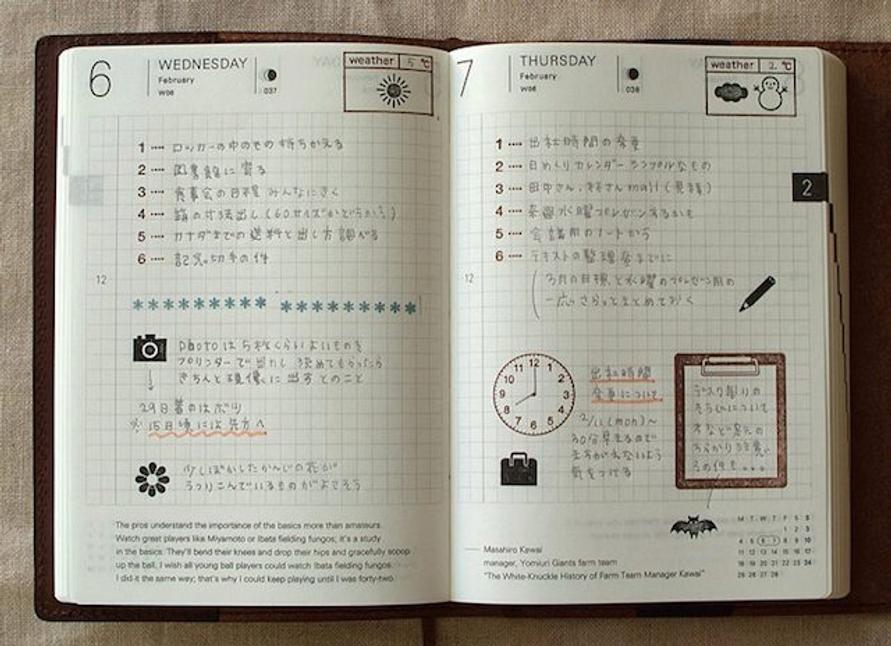 6
WEDNESDAY
February
W06
037
weather 5 ℃
1 ···· ロッカーの中のもの持ちかえる
2 ···· 図書館に寄る
3 ···· 食事会の日程 みんなにきく
4 ···· 箱の寸法出し(60サイズかどうか?)
5 ···· カナダまでの送料と出し方調べる
6 ···· 記念切手の件
12
photoは5枚くらいよいものを
プリンターで出力し 決めてもらったら
きちんと現像に出すとのこと
29日着のはボツ
※15日頃には先方へ
少しぼかしたかんじの花が
うつりこんでいるものがよさそう
The pros understand the importance of the basics more than amateurs.
Watch great players like Miyamoto or Ibata fielding fungos; it's a study
in the basics. They'll bend their knees and drop their hips and gracefully scoop
up the ball. I wish all young ball players could watch Ibata fielding fungos.
I did it the same way; that's why I could keep playing until I was forty-two.
7
THURSDAY
February
W06
038
weather 2 ℃
2
1 ···· 出社時間の変更
2 ···· 日めくりカレンダー シンプルなもの
3 ···· 田中さん、林さん mail
4 ···· 来週水曜プレゼン
5 ···· 会議用のノート
6 ···· テキストの整理
3月の目標と水曜のプレゼン用の
一応さらっとまとめておく
12
12 1 2 3 4 5 6 7 8 9 10 11
出社時間
変更について
2/11 (mon)~
30分早まるので
まちがえないよう
気をつける
デスク周りの
そうじについて
M T W T F S S
1 2 3
4 5 6 7 8 9 10
11 12 13 14 15 16 17
18 19 20 21 22 23 24
25 26 27 28
Masahiro Kawai
manager, Yomiuri Giants farm team
"The White-Knuckle History of Farm Team Manager Kawai"